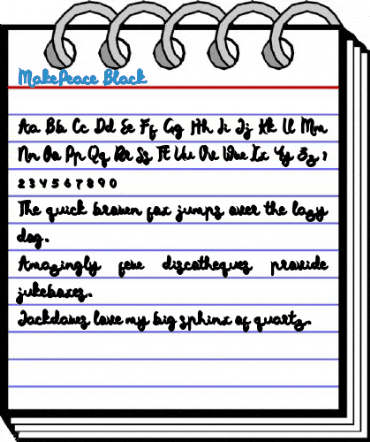 MakePeace Black
Aa Bb Cc Dd Ee Ff Gg Hh Ii Jj Kk Ll Mm
Nn Oo Pp Qq Rr Ss Tt Uu Vv Ww Xx Yy Zz 1
2 3 4 5 6 7 8 9 0
The quick brown fox jumps over the lazy
dog.
Amazingly few discotheques provide
jukeboxes.
Jackdaws love my big sphinx of quartz.